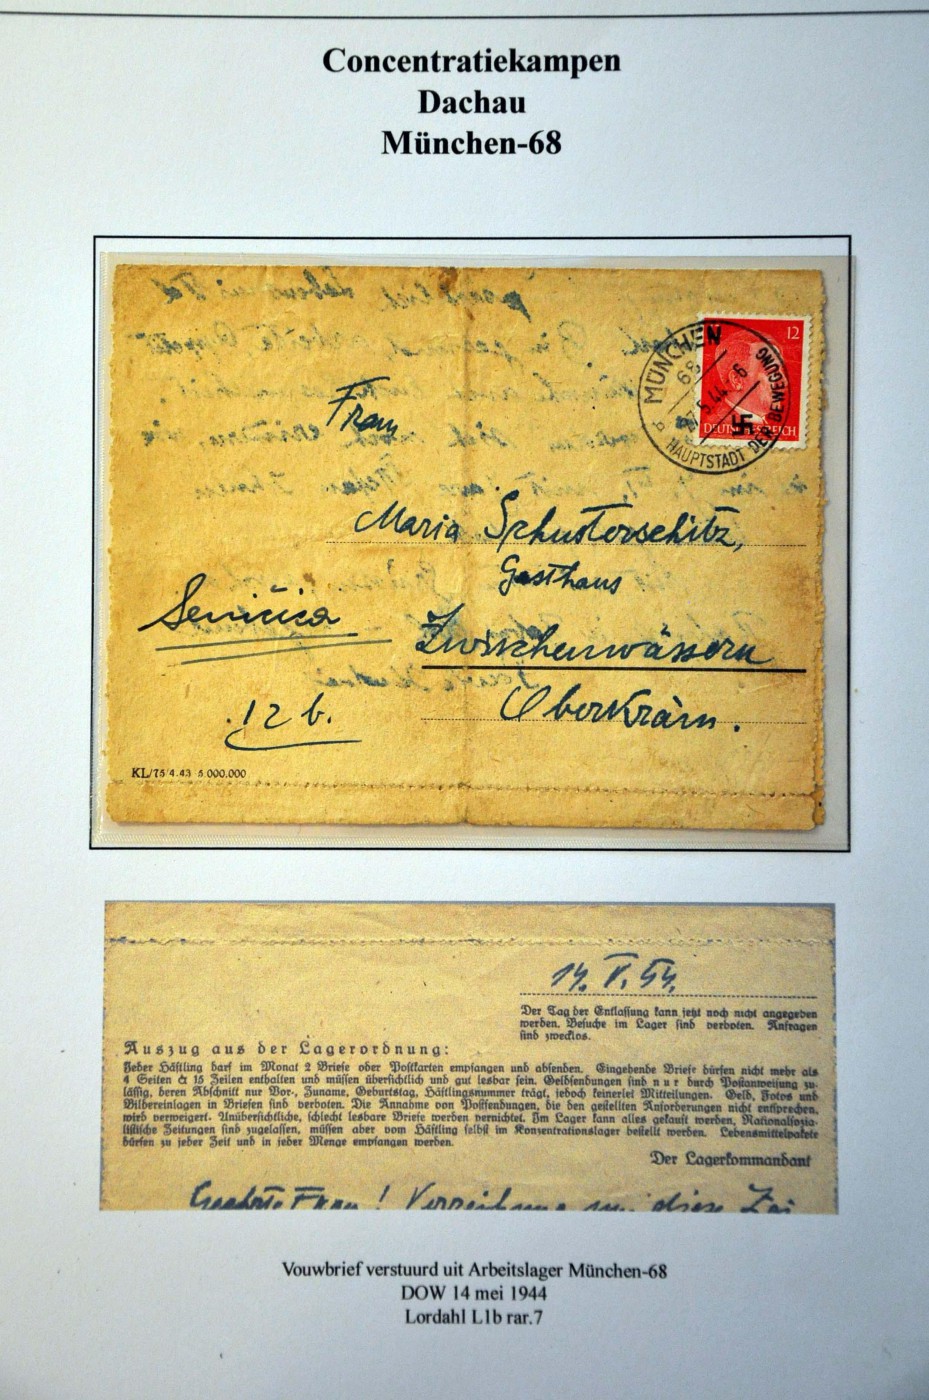 Concentratiekampen
Dachau
München-68
12
DEUTSCHES REICH
MÜNCHEN
68
5.44
HAUPTSTADT DER BEWEGUNG
Frau
Maria Schusterschitz,
Gasthaus
Seničica
Zwischenwässern
12 b.
Oberkrain.
KL/75/4.43 5.000.000
14. V. 44.
Der Tag der Entlassung kann jetzt noch nicht angegeben
werden. Besuche im Lager sind verboten. Anfragen
sind zwecklos.
Auszug aus der Lagerordnung:
Jeder Häftling darf im Monat 2 Briefe oder Postkarten empfangen und absenden. Eingehende Briefe dürfen nicht mehr als
4 Seiten à 15 Zeilen enthalten und müssen übersichtlich und gut lesbar sein. Geldsendungen sind nur durch Postanweisung zu-
lässig, deren Abschnitt nur Vor-, Zuname, Geburtstag, Häftlingsnummer trägt, jedoch keinerlei Mitteilungen. Geld, Fotos und
Bildereinlagen in Briefen sind verboten. Die Annahme von Postsendungen, die den gestellten Anforderungen nicht entsprechen,
wird verweigert. Unübersichtliche, schlecht lesbare Briefe werden vernichtet. Im Lager kann alles gekauft werden. Nationalsozia-
listische Zeitungen sind zugelassen, müssen aber vom Häftling selbst im Konzentrationslager bestellt werden. Lebensmittelpakete
dürfen zu jeder Zeit und in jeder Menge empfangen werden.
Der Lagerkommandant
Geehrte Frau! Verzeihung diese
Vouwbrief verstuurd uit Arbeitslager München-68
DOW 14 mei 1944
Lordahl L1b rar.7